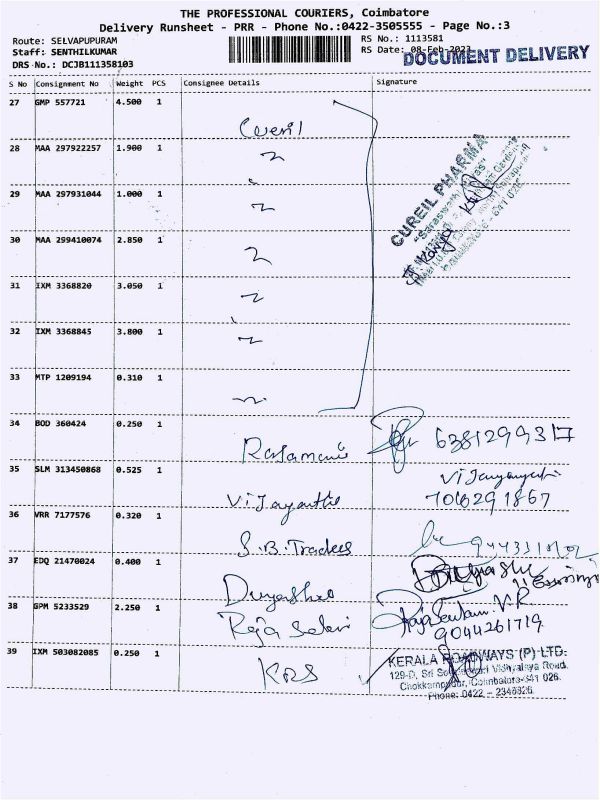 THE PROFESSIONAL COURIERS, Coimbatore
Delivery Runsheet - PRR - Phone No.:0422-3505555 - Page No.:3
Route: SELVAPUPURAM
Staff: SENTHILKUMAR
DRS No.: DCJB111358103
RS No.: 1113581
RS Date: 08-Feb-2023
DOCUMENT DELIVERY
S No Consignment No Weight PCS Consignee Details Signature
27 GMP 557721 4.500 1
Cureil
28 MAA 297922257 1.900 1
CUREIL PHARMA
"Saraswathi
29 MAA 297931044 1.000 1
30 MAA 299410074 2.850 1
31 IXM 3368820 3.050 1
32 IXM 3368845 3.800 1
33 MTP 1209194 0.310 1
34 BOD 360424 0.250 1
Rasamani 6381299317
35 SLM 313450868 0.525 1
Vijayanthi
706291867
36 VRR 7177576 0.320 1
S.B. Traders
37 EDQ 21470024 0.400 1
Divyashree
38 GPM 5233529 2.250 1
Raja Selvi
V.R
9044261719
39 IXM 503082085 0.250 1
KRS
KERALA ROADWAYS (P) LTD.
129-D, Sri Vidhyalaya Road,
Chokkampudur, Coimbatore-641 026.
Phone: 0422 - 2348326